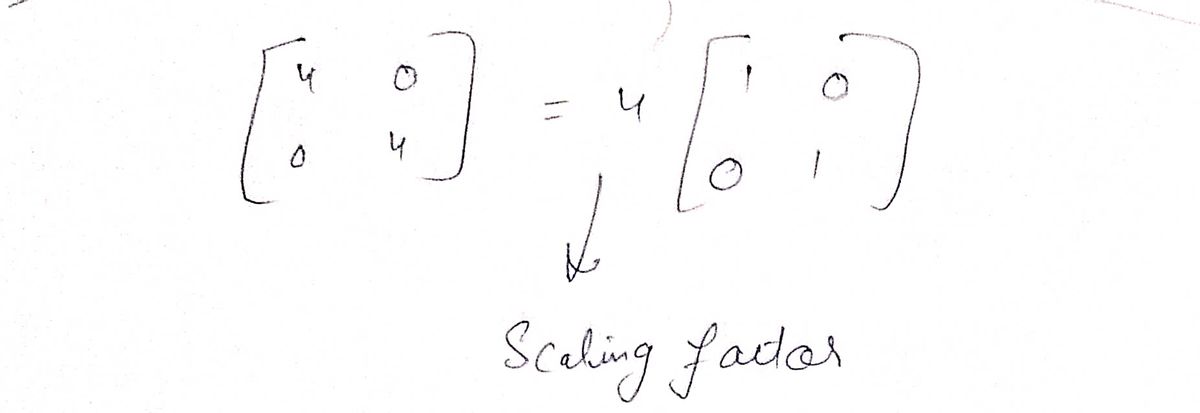 [4 0
0 4] = 4 [1 0
0 1]
Scaling factor